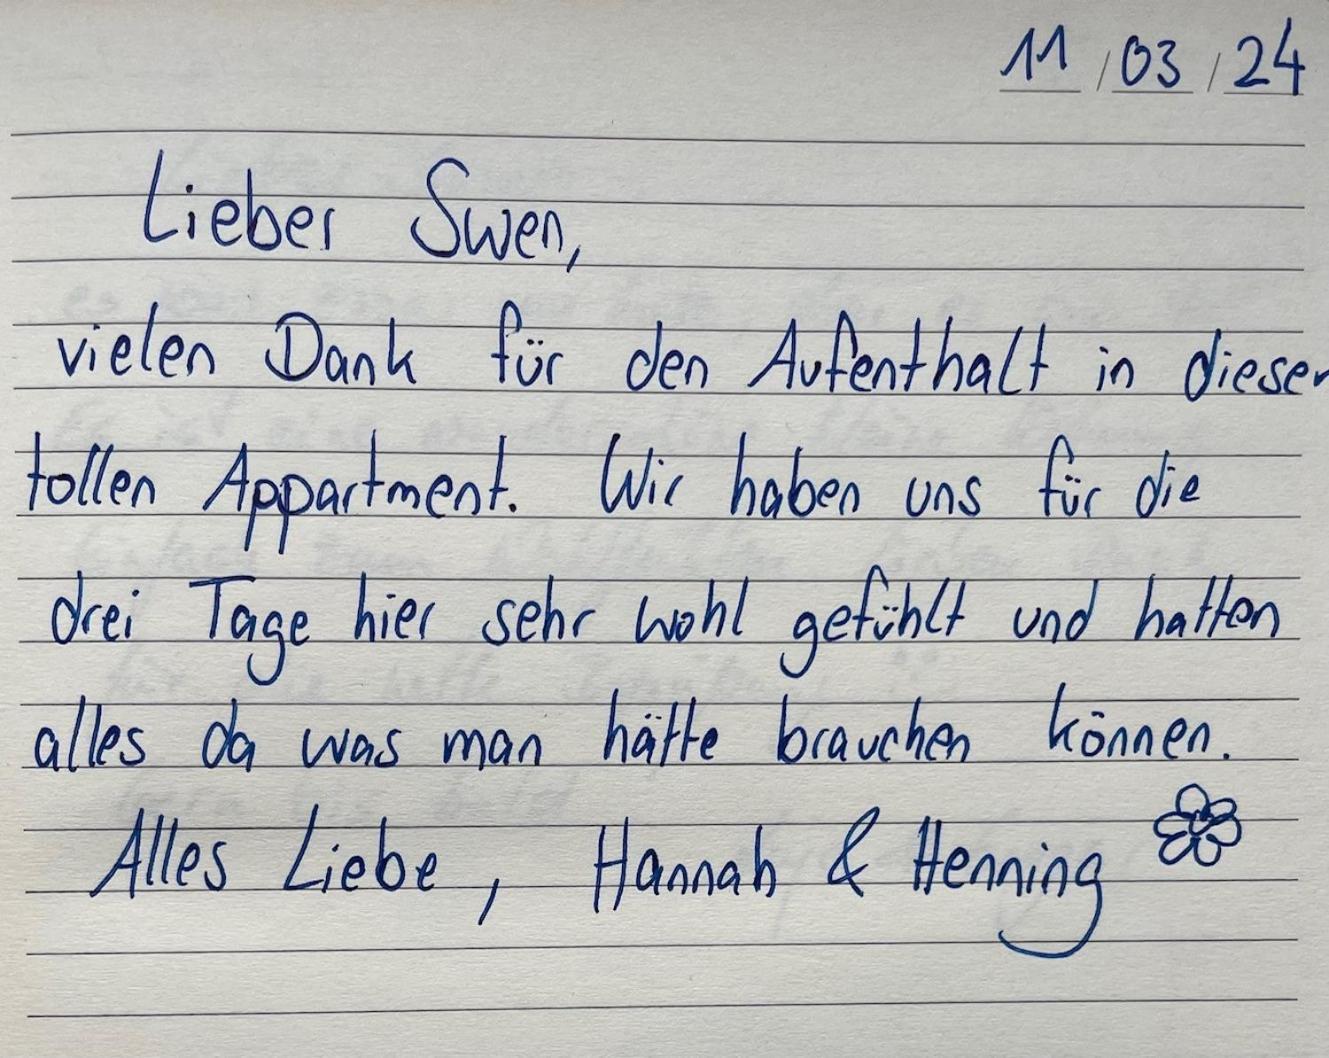 11/03/24
Lieber Swen,
vielen Dank für den Aufenthalt in dieser
tollen Appartment. Wir haben uns für die
drei Tage hier sehr wohl gefühlt und hatten
alles da was man hätte brauchen können.
Alles Liebe, Hannah & Henning